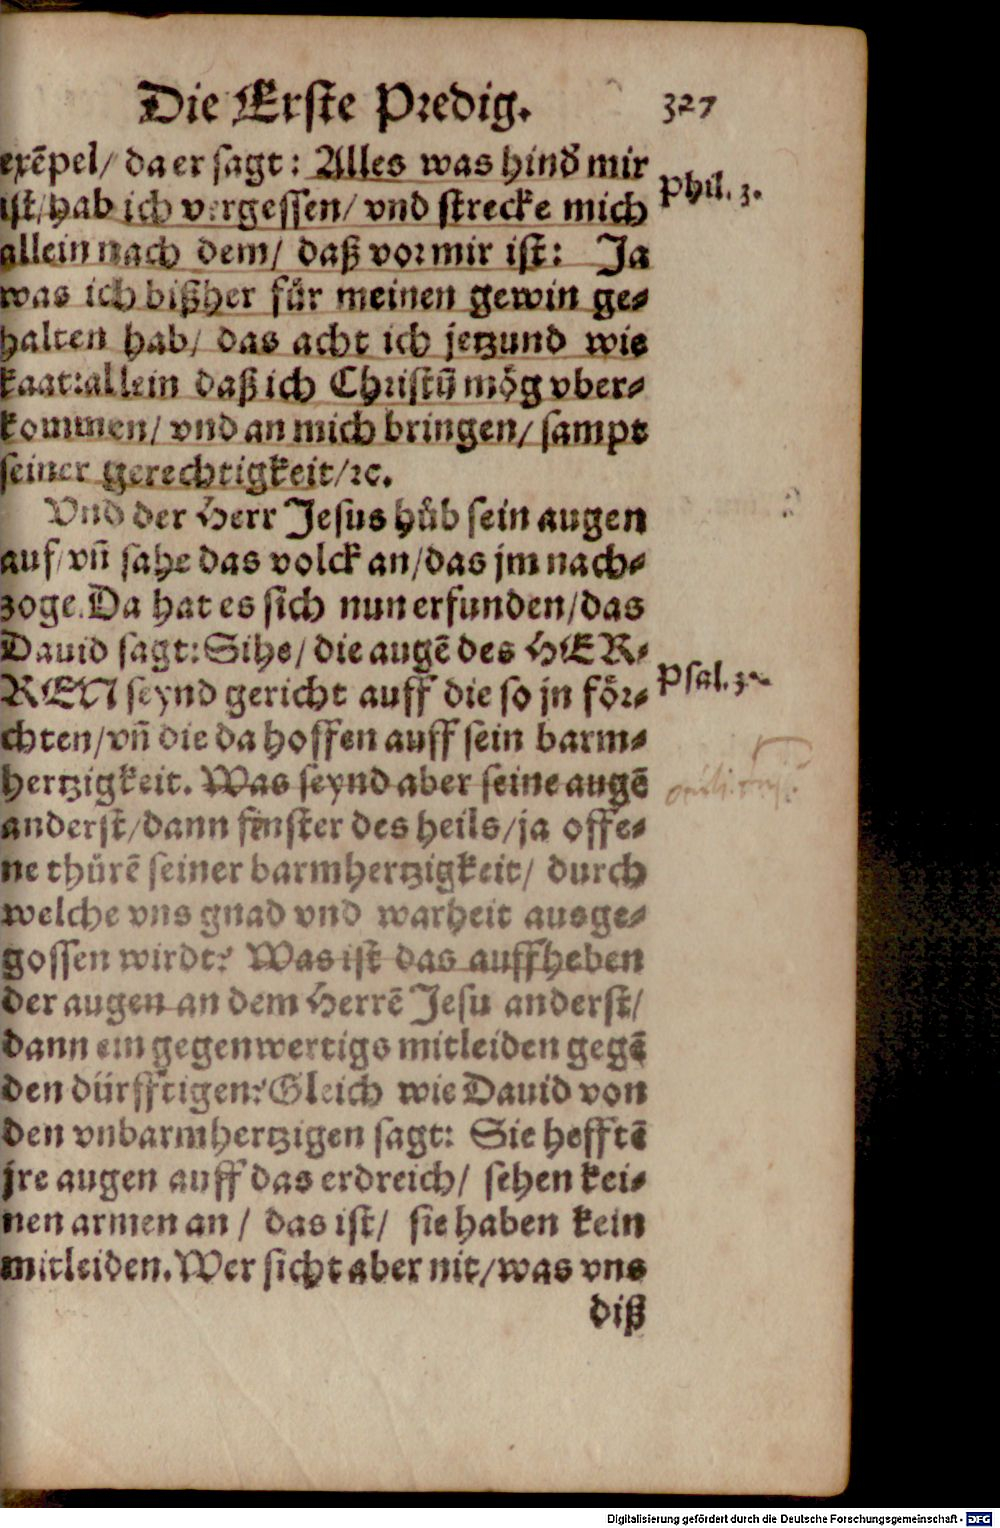 Die Erste Predig. 327
exẽpel/ da er sagt: Alles was hinď mir
ist/ hab ich vergessen/ vnd strecke mich
Phil. 3.
allein nach dem/ daß vor mir ist: Ja
was ich bißher für meinen gewin ge-
halten hab/ das acht ich jetzund wie
kaat: allein daß ich Christũ mög vber-
kommen/ vnd an mich bringen/ sampt
seiner gerechtigkeit/ ꝛc.
Vnd der Herr Jesus hůb sein augen
auf/ vñ sahe das volck an/ das jm nach-
zoge. Da hat es sich nun erfunden/ das
Dauid sagt: Sihe/ die augẽ des HER-
REN seynd gericht auff die so jn för-
Psal. 32
chten/ vñ die da hoffen auff sein barm-
hertzigkeit. Was seynd aber seine augẽ
anderst/ dann fenster des heils/ ja offe-
ne thürẽ seiner barmhertzigkeit/ durch
welche vns gnad vnd warheit ausge-
gossen wirdt? Was ist das auffheben
der augen an dem Herrẽ Jesu anderst/
dann ein gegenwertigs mitleiden gegẽ
den dürfftigen? Gleich wie Dauid von
den vnbarmhertzigen sagt: Sie hefftẽ
jre augen auff das erdreich/ sehen kei-
nen armen an/ das ist/ sie haben kein
mitleiden. Wer sicht aber nit/ was vns
diß
Digitalisierung gefördert durch die Deutsche Forschungsgemeinschaft - DFG